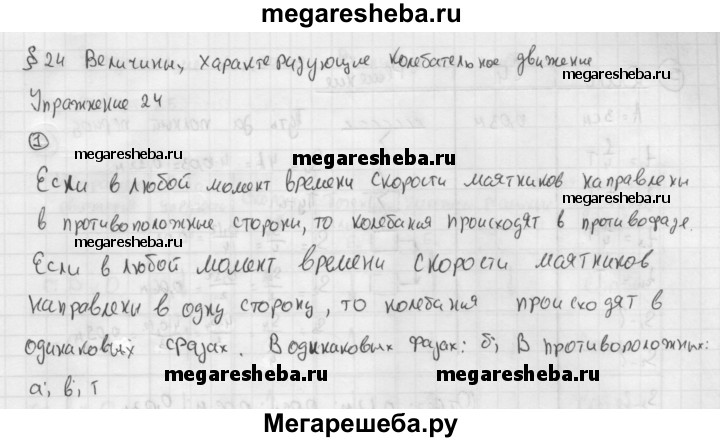 megaresheba.ru
§ 24 Величины, характеризующие колебательное движение
megaresheba.ru
Упражнение 24
1
megaresheba.ru
megaresheba.ru
Если в любой момент времени скорости маятников направлены
в противоположные стороны, то колебания происходят в противофазе.
megaresheba.ru
Если в любой момент времени скорости маятников
направлены в одну сторону, то колебания происходят в
одинаковых фазах. В одинаковых фазах: б; В противоположных:
megaresheba.ru
megaresheba.ru
а; в; г
Мегарешеба.ру